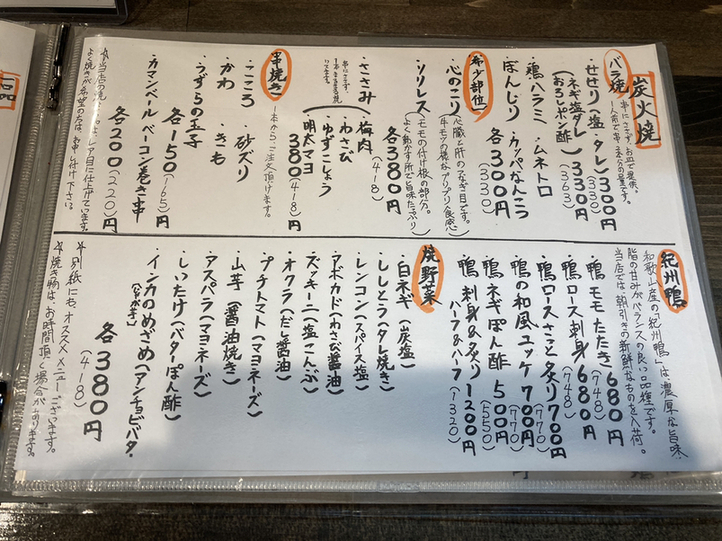 炭火焼
バラ焼
串にささず、お皿で提供。
1人前で串2本分の量です。
・せせり(塩・タレ) 300円
(330)
(ネギ塩ダレ 330円
おろしポン酢) (363)
・鶏ハラミ ・ムネトロ
・ぼんじり ・カッパなんこつ
各300円
(330)
希少部位
・心のこり
・ソリレス
モモの付け根の部分。
よく動かす所で旨味たっぷり
各380円
(418)
・ささみ
・梅肉
・わさび
・ゆずこしょう
・明太マヨ
380円
(418)
串焼き
1本からご注文頂けます。
・こころ ・砂ズリ
・かわ ・きも
・うずらの玉子
各150円
(165)
・カマンベールベーコン巻き串
各200円
(220)
紀州鴨
和歌山産の「紀州鴨」は濃厚な旨味、
脂の甘みがバランスの良い品種です。
当店では、朝引きの新鮮なものを入荷。
・鴨モモたたき 680円
(748)
・鴨ロース刺身 680円
(748)
・鴨ロースさっと炙り 700円
(770)
・鴨の和風ユッケ 700円
(770)
・鴨ネギぽん酢 500円
(550)
・鴨刺身&炙り 1200円
ハーフ&ハーフ (1320)
焼野菜
・白ネギ(山炭塩)
・ししとう(タレ焼き)
・レンコン(スパイス塩)
・アボカド(わさび醤油)
・ズッキーニ(塩こんぶ)
・オクラ(だし醤油)
・プチトマト(マヨネーズ)
・山芋(醤油焼き)
・アスパラ(マヨネーズ)
・しいたけ(バターぽん酢)
・インカのめざめ(アンチョビバター)
(じゃが芋)
各380円
(418)
※別紙にもオススメメニューございます。
※焼き物は、お時間頂く場合があります。